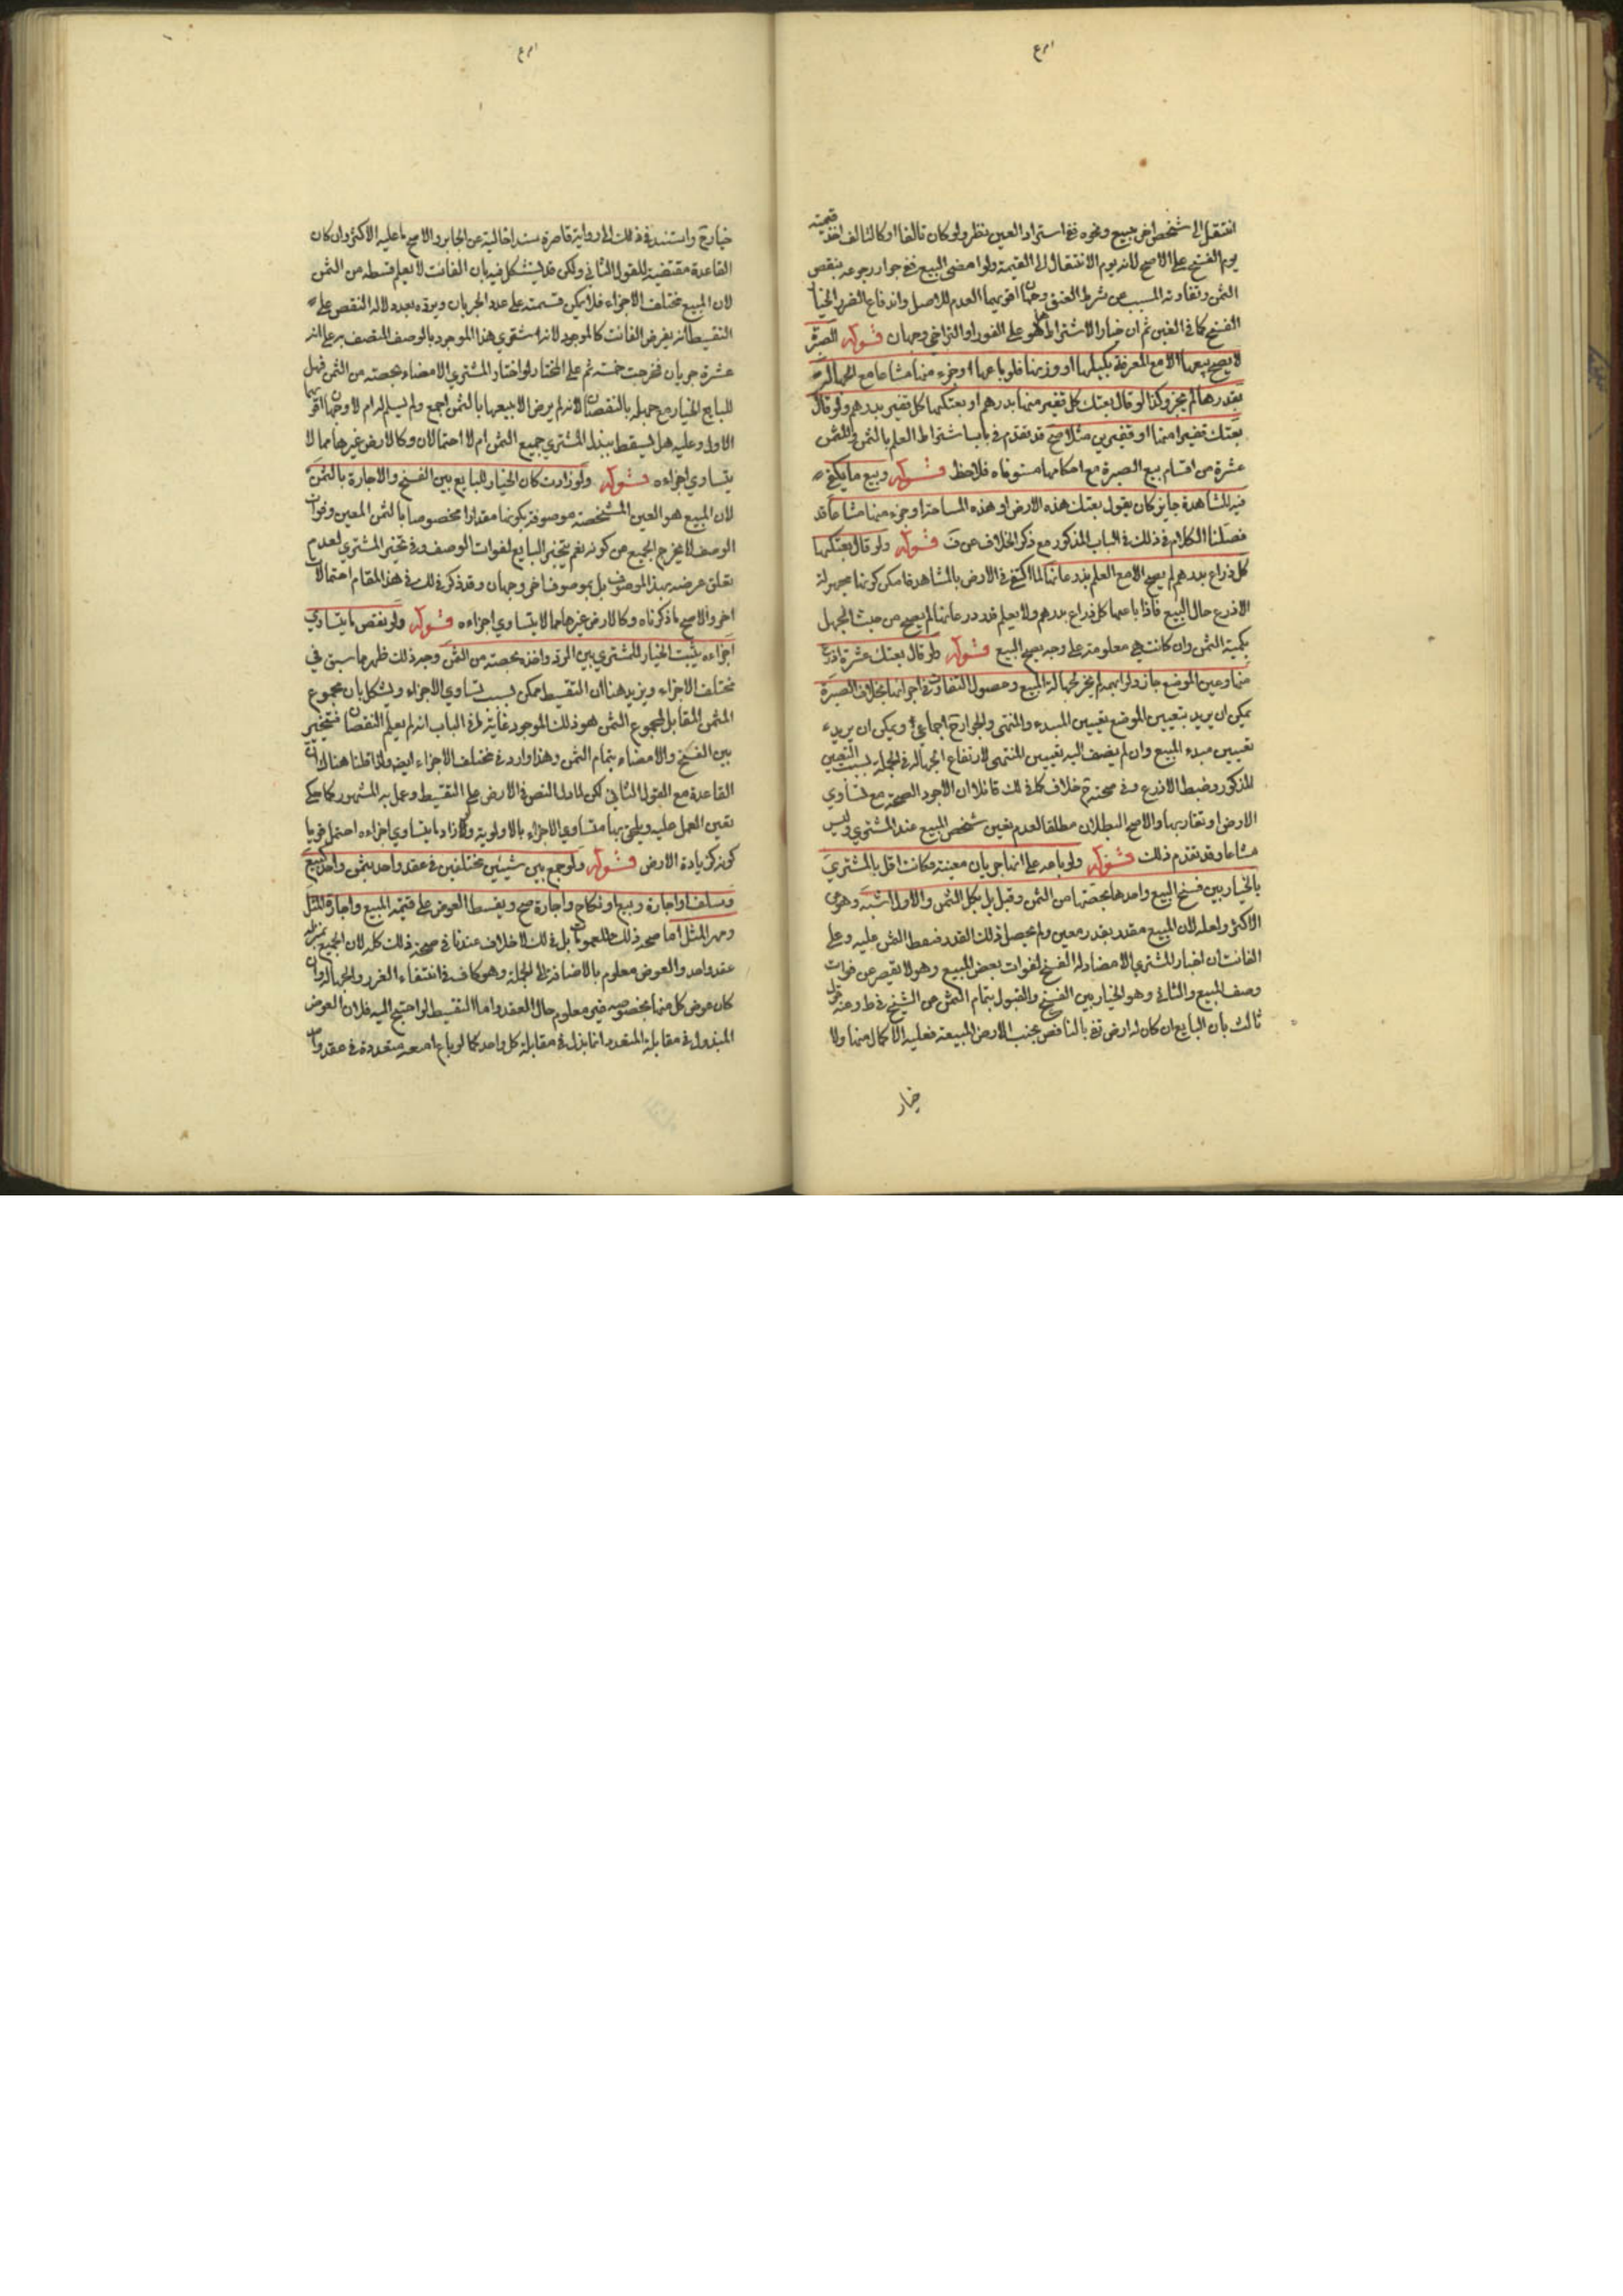 انتقل الى شخص اخر ببيع ونحوه ففي استرداد العين نظر ولو كان تالفا او كالتالف اخذ قيمته
يوم الفسخ على الاصح لانه يوم الانتقال الى القيمة ولو امضى البيع ففي جواز رجوعه بنقص
الثمن وتفاوته المسبب عن شرط العتق وجهان اقربهما العدم للاصل واندفاع الضرر بالخيار
الفسخ كما في الغبن ثم ان خيار الاشتراط هل هو على الفور او التراخي وجهان قوله الصبرة
لا يصح بيعها الا مع المعرفة بكيلها او وزنها فلو باعها او جزء منها مشاعا مع الجهالة
بقدرها لم يجز وكذا لو قال بعتك كل قفيز منها بدرهم او بعتكها كل قفيز بدرهم ولو قال
بعتك قفيزا منها او قفيزين مثلا صح قد تقدم في باب اشتراط العلم بالثمن والمثمن
عشرة من اقسام بيع الصبرة مع احكامها مستوفاه فلاحظ قوله وبيع ما يكفي
فيه المشاهدة جايز كان يقول بعتك هذه الارض او هذه الساحة او جزء منها مشاعا قد
فصلنا الكلام في ذلك في الباب المذكور مع ذكر الخلاف عن ف قوله ولو قال بعتكها
كل ذراع بدرهم لم يصح الا مع العلم بذرعانها لما اكتفى في الارض بالمشاهدة امكن كونها مجهولة
الاذرع حال البيع فاذا باعها كل ذراع بدرهم ولا يعلم قدر ذرعانها لم يصح من حيث الجهل
بكمية الثمن وان كانت هي معلومة على وجه يصح البيع قوله ولو قال بعتك عشرة اذرع
منها وعين الموضع جاز ولو ابهمه لم يجز لجهالة المبيع وحصول التفاوت في اجزائها بخلاف الصبرة
يمكن ان يريد بتعيين الموضع تعيين المبدء والمنتهى والجواز ح اجماعي ويمكن ان يريد
تعيين مبدء المبيع وان لم يضف اليه تعيين المنتهى لارتفاع الجهالة في الجملة بسبب التعيين
المذكور وضبط الاذرع وفي صحته ح خلاف كل ذلك قائلا ان الاجود الصحة مع تساوي
الارض او تقاربها والاصح البطلان مطلقا لعدم تعين شخص المبيع عند المشتري وليس
مشاعا وقد تقدم ذلك قوله ولو باعه على انها جربان معينة فكانت اقل فالمشتري
بالخيار بين فسخ البيع واخذها بحصتها من الثمن وقيل بل بكل الثمن والاول اشبه وهو عن
الاكثر ولعله لان المبيع مقدر بقدر معين ولم يحصل ذلك القدر فيقسط الثمن عليه وعلى
الفائت ان اختار المشتري الامضاء وله الفسخ لفوات بعض المبيع وهو لا يقصر عن فوات
وصف المبيع والثاني وهو الخيار بين الفسخ والقبول بتمام الثمن عن الشيخ في ط وعنه قول
ثالث بان البايع ان كان له ارض تفي بالناقص بجنب الارض المبيعة فعليه الاكمال منها ولا
خيار
خيار ح واستند في ذلك الى رواية قاصرة سندا خالية عن الجابر والاصح ما عليه الاكثر وان كان
القاعدة مقتضية للقول الثاني ولكن قد يستشكل فيه بان الفائت لا يعلم قسطه من الثمن
لان المبيع مختلف الاجزاء فلا يمكن قسمته على عدد الجربان ويرده بعد دلالة النقص على
التقسيط انه يفرض الفائت كالموجود لانه اشترى هذا الموجود بالوصف المتصف به على انه
عشرة جربان فخرجت خمسة ثم على المختار لو اختار المشتري الامضاء بحصته من الثمن فهل
للبايع الخيار مع جهله بالنقصان لانه لم يرض الا ببيعها بالثمن اجمع ولم يسلم له ام لا وجهان اقربهما
الاول وعليه هل يسقط ببذل المشتري جميع الثمن ام لا احتمالان وكالارض غيرها مما لا
يتساوي اجزاءه قوله ولو زادت كان الخيار للبايع بين الفسخ والاجازة بالثمن
لان المبيع هو العين المشخصة موصوفة بكونها مقدارا مخصوصا بالثمن المعين وفوات
الوصف لا يخرج الجميع من كونه نعم يتخير البايع لفوات الوصف وفي تخير المشتري لعدم
تعلق غرضه بهذا الموصوف بل بموصوف اخر وجهان وقد ذكر في ذلك في هذا المقام احتمالات
اخر والاصح ما ذكرناه وكالارض غيرها مما لا يتساوي اجزاءه قوله ولو نقص ما يتساوي
اجزاءه يثبت الخيار للمشتري بين الرد واخذه بحصته من الثمن وجه ذلك ظهر مما سبق في
مختلف الاجزاء ويزيد هنا ان التقسيط ممكن بسبب تساوي الاجزاء ويشكل بان مجموع
المثمن المقابل لمجموع الثمن هو ذلك الموجود غاية ما في الباب انه لم يعلم النقصان فتخير
بين الفسخ والامضاء بتمام الثمن وهذا وارد في مختلف الاجزاء ايضا ولذا قلنا هناك ان
القاعدة مع القول الثاني لكن لما دل النص في الارض على التقسيط وعمل به المشهور كما حكي
تعين العمل عليه ويلحق بها متساوي الاجزاء بالاولوية ولو زاد ما يتساوي اجزاءه احتمل قويا
كونه كزيادة الارض قوله ولو جمع بين شيئين مختلفين في عقد واحد بثمن واحد كبيع
وسلف او اجارة وبيع او نكاح واجارة صح ويقسط العوض على قيمة المبيع واجارة المثل
ومهر المثل اما صحة ذلك للعمومات بل في ذلك لا خلاف عندنا في صحة ذلك كله لان الجميع بمنزلة
عقد واحد والعوض معلوم بالاضافة الى الجملة وهو كاف في انتفاء الغرر والجهالة وان
كان عوض كل منها بخصوصه غير معلوم حال العقد واما التقسيط لو احتيج اليه فلان العوض
المبذول في مقابلة المتعدد انما بذل في مقابلة كل واحد كما لو باع امتعة متعددة في عقد واحد